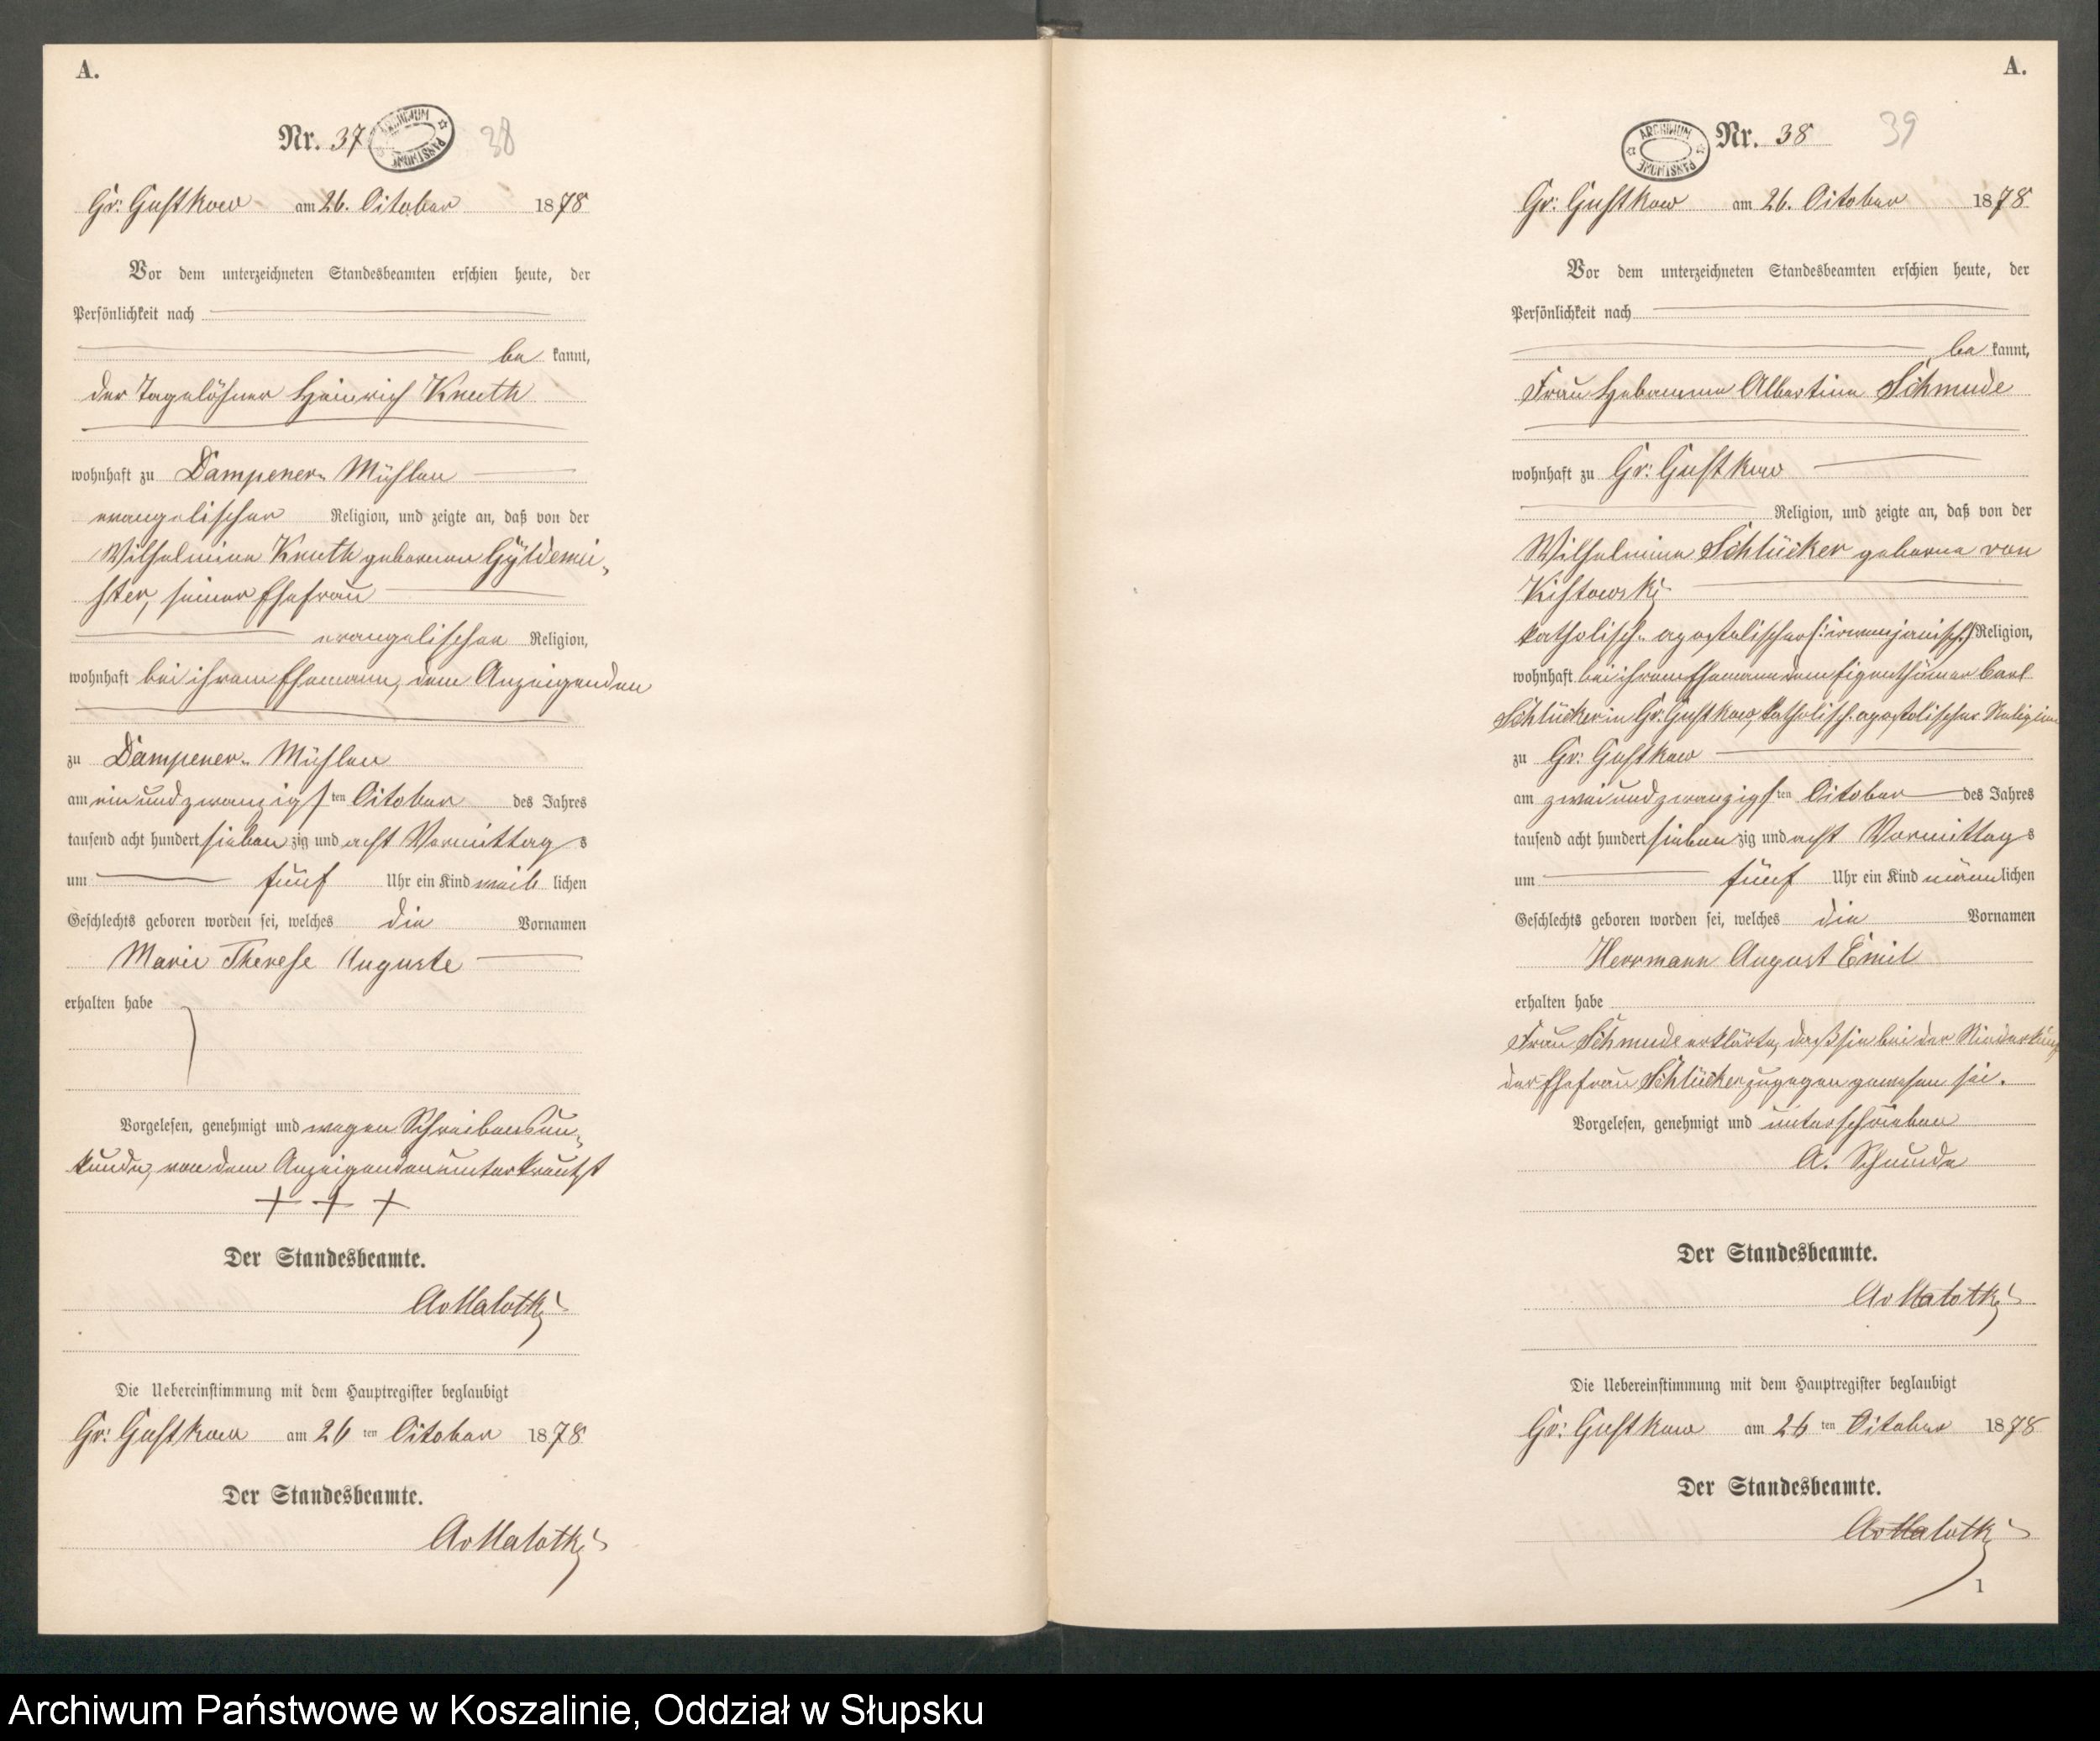 A.
Nr. 37
ARCHIWUM PAŃSTWOWE
38
Gr: Gustkow am 26. October 1878
Vor dem unterzeichneten Standesbeamten erschien heute, der
Persönlichkeit nach
be kannt,
der Tagelöhner Heinrich Knuth
wohnhaft zu Dampener Mühlen
evangelischer Religion, und zeigte an, daß von der
Wilhelmine Knuth geborenen Gÿldemei-
ster, seiner Ehefrau
evangelischer Religion,
wohnhaft bei ihrem Ehemann, dem Anzeigenden
zu Dampener Mühlen
am ein und zwanzigsten October des Jahres
tausend acht hundert siebenzig und acht Vormittags
um fünf Uhr ein Kind weiblichen
Geschlechts geboren worden sei, welches die Vornamen
Marie Therese Auguste
erhalten habe
Vorgelesen, genehmigt und wegen Schreibensun-
kunde, von dem Anzeigenden unterkreuzt
+ + +
Der Standesbeamte.
AvMalotki
Die Uebereinstimmung mit dem Hauptregister beglaubigt
Gr: Gustkow am 26 ten October 1878
Der Standesbeamte.
AvMalotki
A.
ARCHIWUM PAŃSTWOWE
Nr. 38
39
Gr: Gustkow am 26. October 1878
Vor dem unterzeichneten Standesbeamten erschien heute, der
Persönlichkeit nach
be kannt,
Frau Hebamme Albertine Schmude
wohnhaft zu Gr: Gustkow
Religion, und zeigte an, daß von der
Wilhelmine Schlücker geborne von
Kistowski
katholisch-apostolischer (: irwinjanisch :) Religion,
wohnhaft bei ihrem Ehemann dem Eigenthümer Carl
Schlücker in Gr: Gustkow, katholisch-apostolischer Religion
zu Gr: Gustkow
am zwei und zwanzigsten October des Jahres
tausend acht hundert siebenzig und acht Vormittags
um fünf Uhr ein Kind männlichen
Geschlechts geboren worden sei, welches die Vornamen
Herrmann August Emil
erhalten habe
Frau Schmude erklärte, daß sie bei der Niederkunft
der Ehefrau Schlücker zugegen gewesen sei.
Vorgelesen, genehmigt und unterschrieben
A. Schmude
Der Standesbeamte.
AvMalotki
Die Uebereinstimmung mit dem Hauptregister beglaubigt
Gr: Gustkow am 26 ten October 1878
Der Standesbeamte.
AvMalotki
1
Archiwum Państwowe w Koszalinie, Oddział w Słupsku